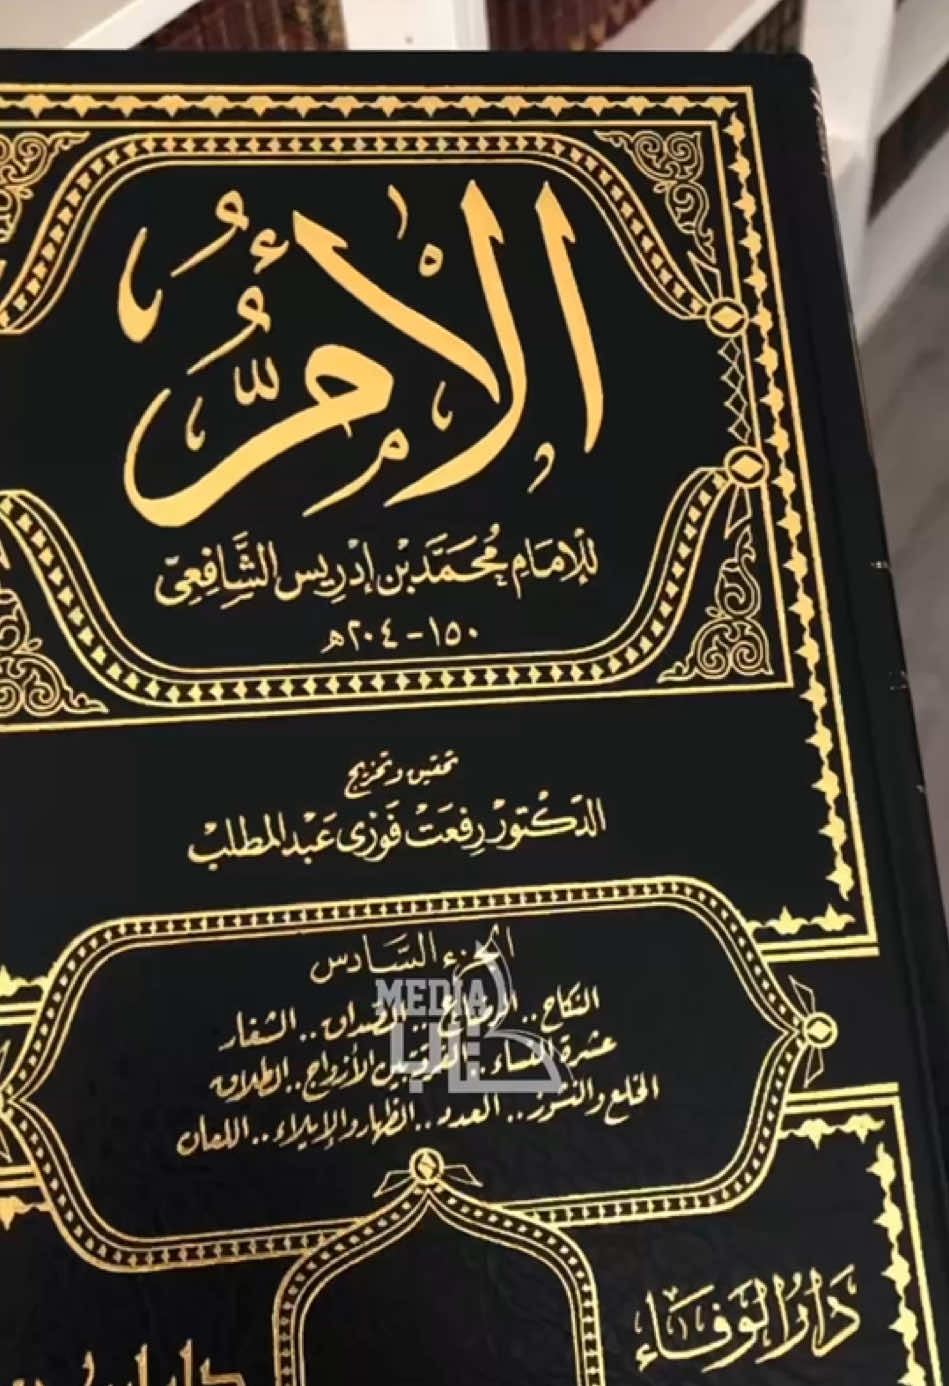 الْأُمُّ
للإمَامِ مُحَمَّد بْن إدْرِيس الشَّافِعِيّ
١٥٠ - ٢٠٤ هـ
تحقيق وتخريج
الدّكتور رفعت فوزى عبد المطلب
الجزء السَّادس
النكاح .. الرضاع .. الصداق .. الشغار
عشرة النساء .. التفريق بين الأزواج .. الطلاق
الخلع والنشوز .. العدد .. الظهار والإيلاء .. اللعان
MEDIA
كتاب
دَارُ الوَفَاء
دار